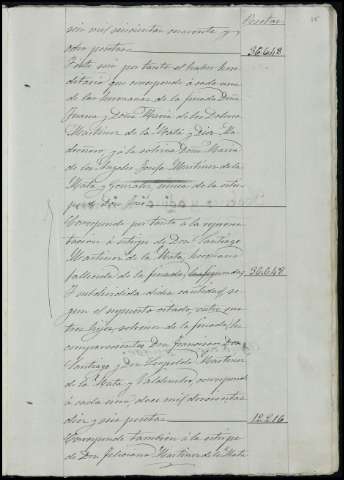 Pesetas
seis mil seiscientas cuarenta y
ocho pesetas 36.648
Este es por tanto el haber here
ditario que corresponde á cada una
de las hermanas de la finada Doña
Juana y Doña María de los Dolores
Martinez de la Mata y Diez Ma
droñero, y á la sobrina Doña María
de los Angeles Josefa Martinez de la
Mata y Gonzalez, unica de la estir
pe de Don José
Corresponde por tanto á la represen
tacion ó estirpe de Don Santiago
Martinez de la Mata, hermano
fallecido de la finada, 36.648
Y subdividida dicha cantidad, se
gun el supuesto citado, entre sus
tres hijos, sobrinos de la finada, los
comparecientes Don Francisco, Don
Santiago y Don Leopoldo Martinez
de la Mata y Valdenebro, corresponde
á cada uno doce mil doscientas
diez y seis pesetas 12.216
Corresponde tambien á la estirpe
de Don Feliciano Martinez de la Mata